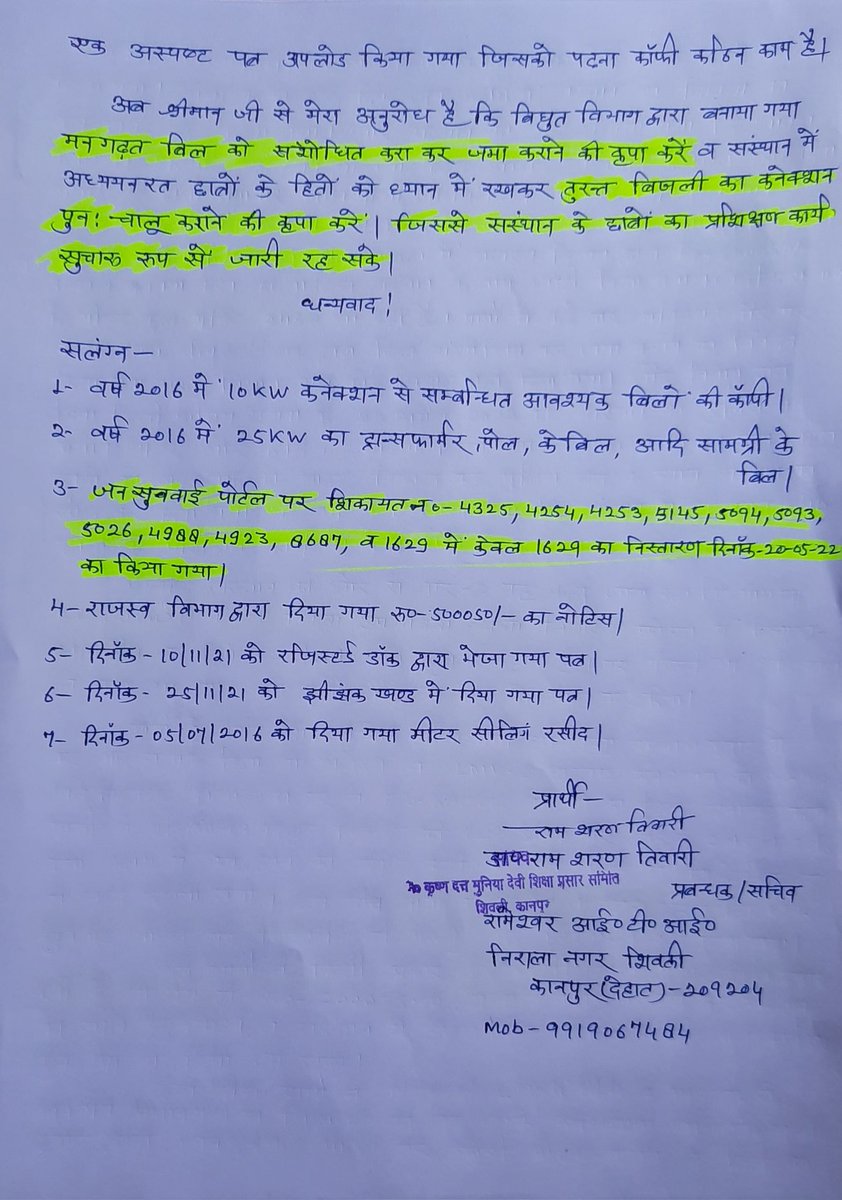 एक अस्पष्ट पत्र अपलोड किया गया जिसको पढ़ना कॉफी कठिन काम है।
अब श्रीमान जी से मेरा अनुरोध है कि विधुत विभाग द्वारा बनाया गया
मनगढ़त बिल को संशोधित करा कर जमा कराने की कृपा करें व संस्थान में
अध्ययनरत छात्रों के हितों को ध्यान में रखकर तुरन्त बिजली का कनेक्शन
पुनः चालू कराने की कृपा करें। जिससे संस्थान के छात्रों का प्रशिक्षण कार्य
सुचारू रूप से जारी रह सके।
धन्यवाद!
सलंग्न—
1- वर्ष 2016 में 10KW कनेक्शन से सम्बन्धित आवश्यक बिलों की कॉपी।
2- वर्ष 2016 में 25KW का ट्रान्सफार्मर, पोल, केबिल, आदि सामग्री के
बिल।
3- जन सुनवाई पोर्टल पर शिकायत न०- 4325, 4254, 4253, 5145, 5094, 5093,
5026, 4988, 4923, 8687, व 1629 में केवल 1629 का निस्तारण दिनॉक-20-05-22
का किया गया।
4- राजस्व विभाग द्वारा दिया गया रू०- 500050/- का नोटिस।
5- दिनॉक - 10/11/21 को रजिस्टर्ड डॉक द्वारा भेजा गया पत्र।
6- दिनॉक - 25/11/21 को झींझक खण्ड में दिया गया पत्र।
7- दिनॉक - 05/07/2016 को दिया गया मीटर सीलिगं रसीद।
प्रार्थी—
राम शरण तिवारी
राम शरण तिवारी
कृष्ण दत्त मुनिया देवी शिक्षा प्रसार समिति
प्रबन्धक/सचिव
शिवली, कानपुर
रामेश्वर आई० टी० आई०
निराला नगर शिवली
कानपुर (देहात) - 209204
Mob - 9919067484